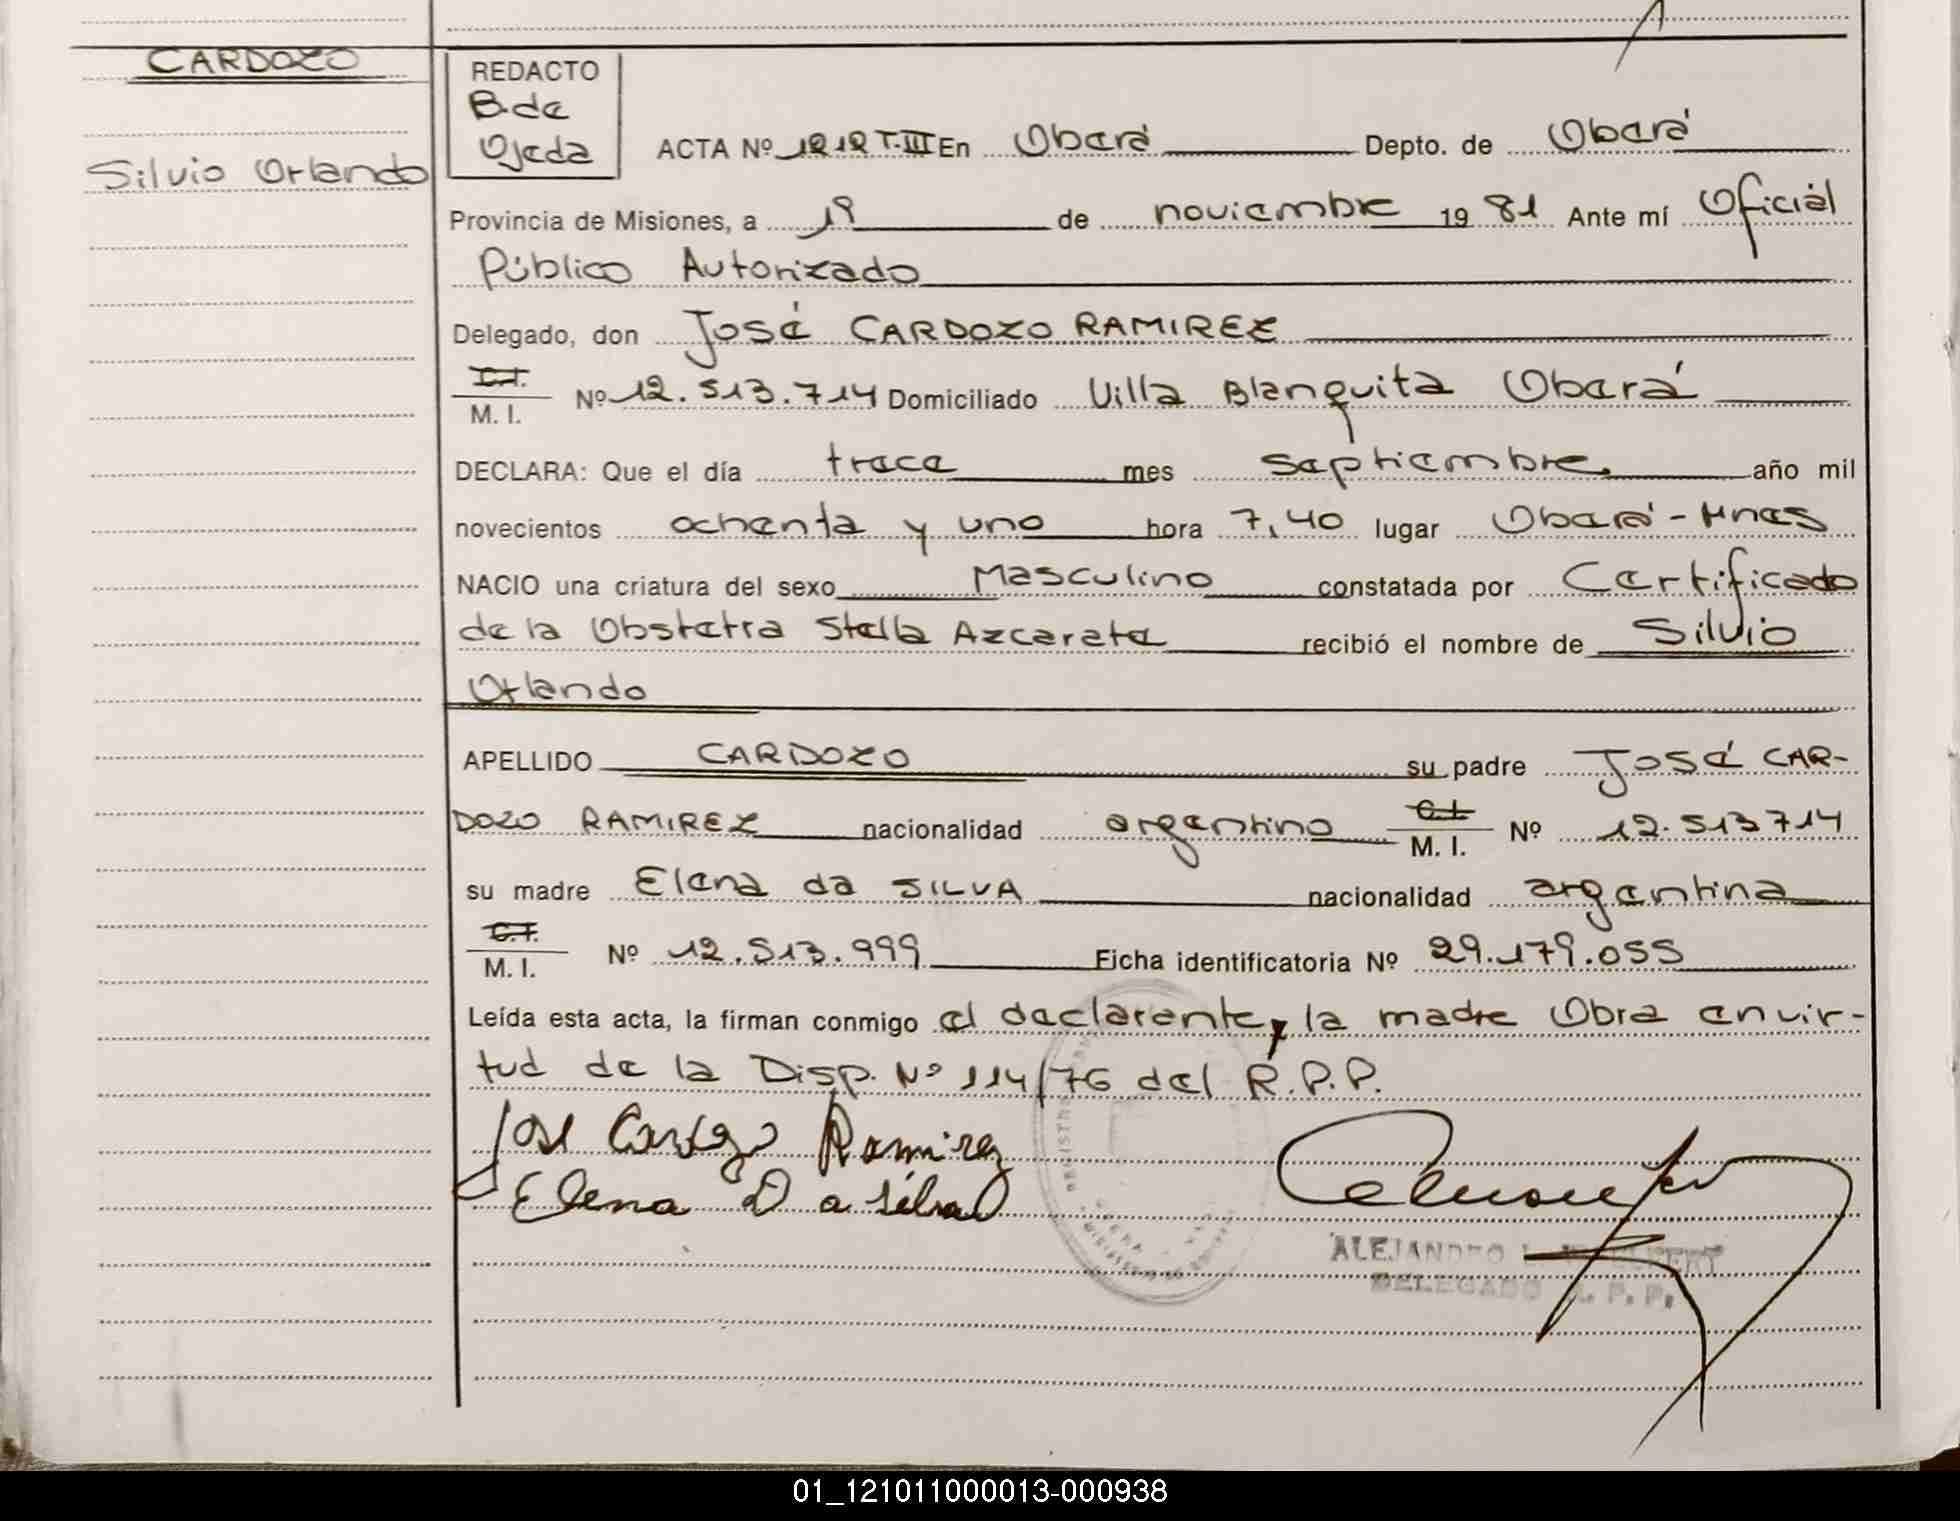 CARDOZO
Silvio Orlando
REDACTO
B. de
Ojeda
ACTA Nº 1212 T.III En Oberá Depto. de Oberá
Provincia de Misiones, a 19 de noviembre 1981 Ante mí Oficial
Público Autorizado
Delegado, don José CARDOZO RAMIREZ
C.I.
M. I. Nº 12.513.714 Domiciliado Villa Blanquita Oberá
DECLARA: Que el día trece mes septiembre año mil
novecientos ochenta y uno hora 7,40 lugar Oberá-Mnes
NACIO una criatura del sexo Masculino constatada por Certificado
de la Obstetra Stella Azcarate recibió el nombre de Silvio
Orlando
APELLIDO CARDOZO su padre José CAR-
DOZO RAMIREZ nacionalidad argentino C.I. M. I. Nº 12.513714
su madre Elena da SILVA nacionalidad argentina
C.I.
M. I. Nº 12.513.999 Ficha identificatoria Nº 29.179.055
Leída esta acta, la firman conmigo el declarante y la madre Obra en vir-
tud de la Disp. Nº 114/76 del R.P.P.
José Cardozo Ramirez
Elena Da Silva
ALEJANDRO L.
DELEGADO R. P. P.
01_121011000013-000938